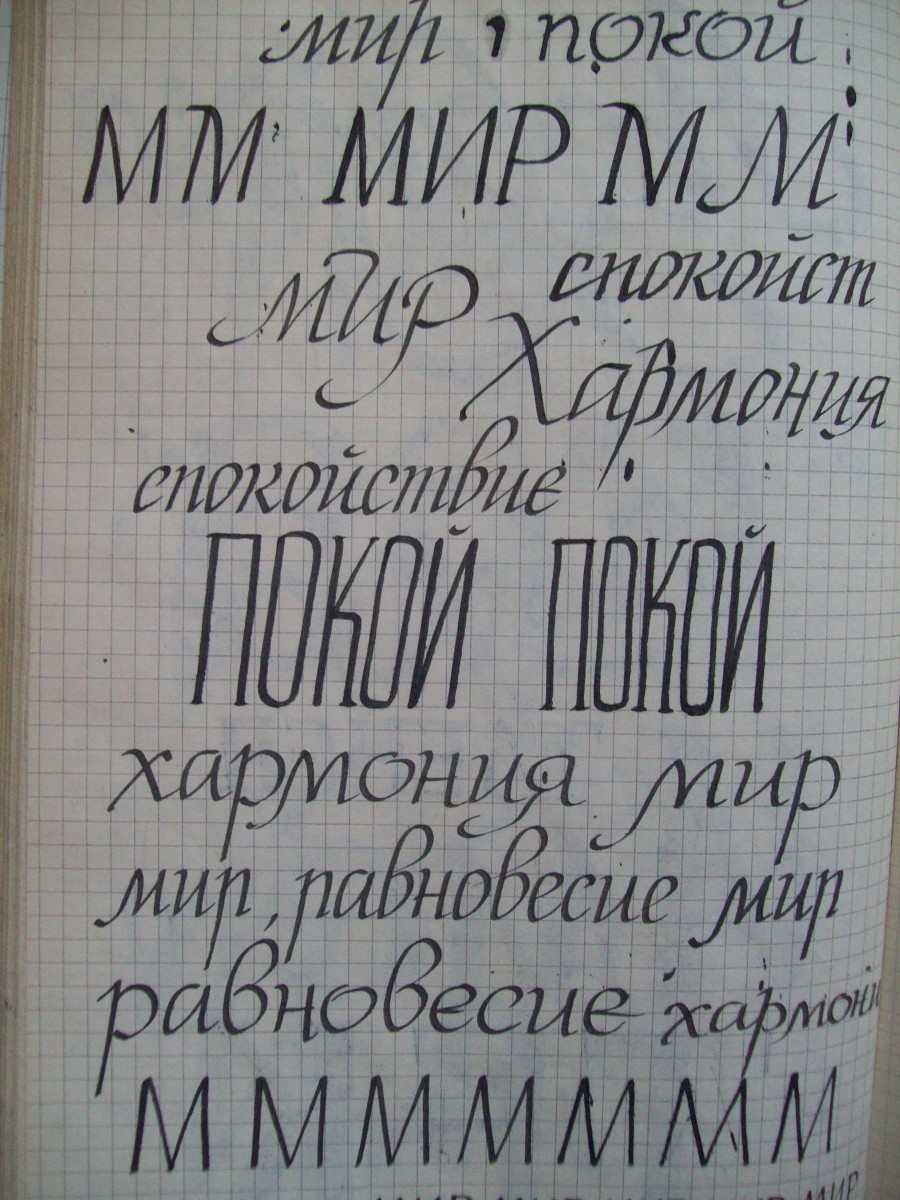 мир, покой
ММ МИР ММ
мир спокойст
Хармония
спокойствие
ПОКОЙ ПОКОЙ
хармония мир
мир, равновесие мир
равновесие хармони
М М М М М М М